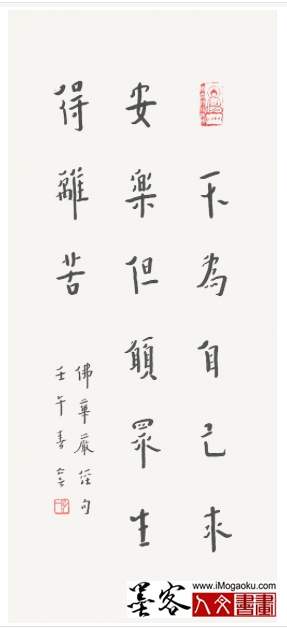 不為自己求
安樂但願眾生
得離苦
佛華嚴經句
壬午春
墨客
www.iMogaoku.com
人文書畫